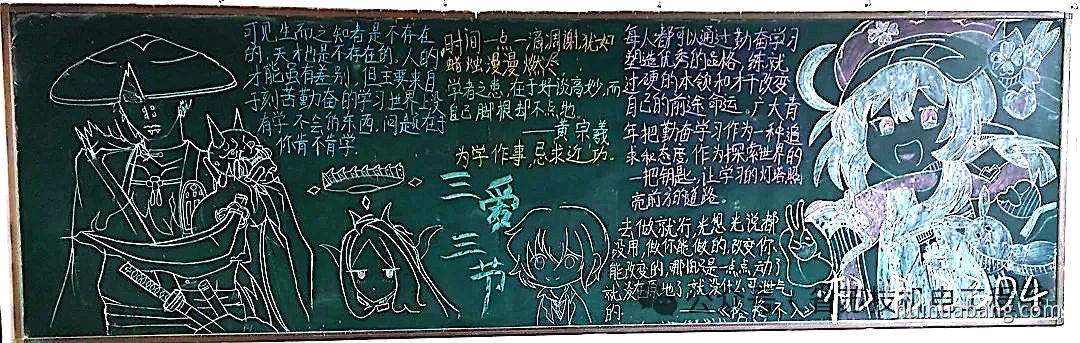 可见生而之知者是不存在
的,天才也是不存在的。人的
才能虽有差别,但主要来自
于刻苦勤奋的学习世上没
有学不会的东西,问题在于
你肯不肯学.
时间一点一滴凋谢,犹如
蜡烛漫漫燃尽
学者之患,在于好谈高妙,而
自己脚根却不点地
——黄宗羲
为学作事,忌求近功.
三爱
三节
每人都可以通过勤奋学习
塑造优秀的品格,练就
过硬的本领和才干改变
自己的前途命运。广大青
年把勤奋学习作为一种追
求和态度,作为探索世界的
一把钥匙,让学习的灯塔照
亮前方的道路。
去做就行,光想光说都
没用,做你能做的,改变你
能改变的,哪怕是一点点,动了
就没在原地了,就没什么可泄气
的